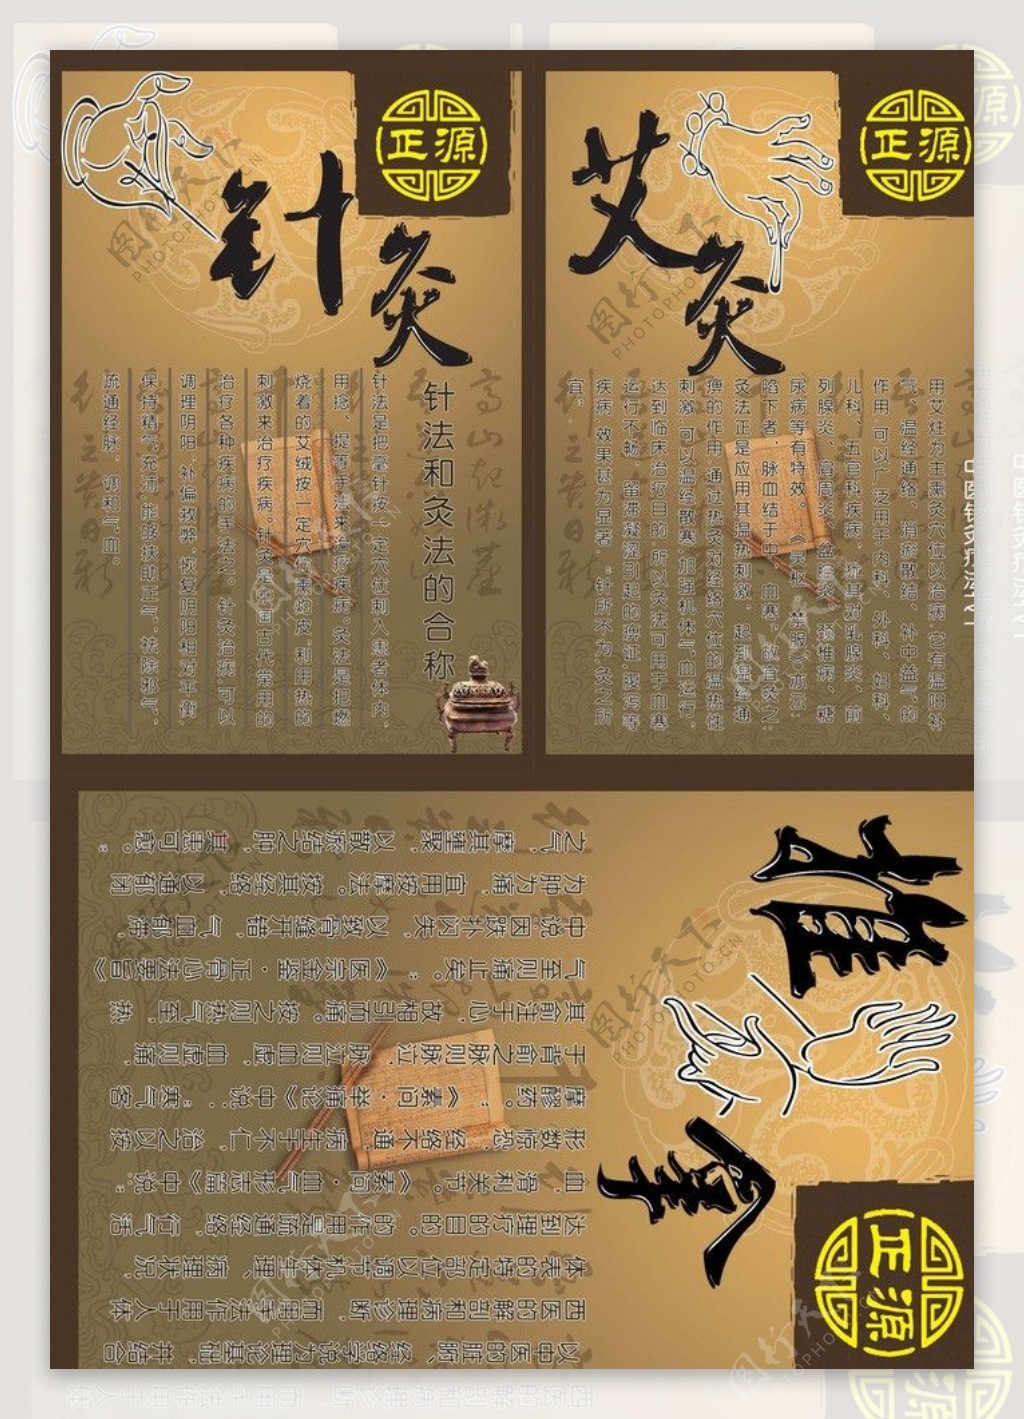 正源
针灸
针法和灸法的合称
针法是把毫针按一定穴位刺入患者体内，
用捻、提等手法来治疗疾病。灸法是把燃
烧着的艾绒按一定穴位熏灼皮，利用热的
刺激来治疗疾病。针灸是中国古代常用的
治疗各种疾病的手法之。针灸治病可以
调理阴阳，补偏救弊，恢复阴阳相对平衡，
保持精气充沛，能够扶助正气，祛除邪气，
疏通经脉，调和气血。
正源
艾灸
用艾灶为主熏灸穴位以治病，它有温阳补
气、温经通络、消瘀散结、补中益气的
作用，可以广泛用于内科、外科、妇科、
儿科、五官科疾病，尤其对乳腺炎、前
列腺炎、肩周炎、盆腔炎、颈椎病、糖
尿病等有特效。《灵枢·禁服》亦云：
陷下者，脉血结于中，血寒，故宜灸之
灸法正是应用其温热刺激，起到温经通
痹的作用，通过热灸对经络穴位的温热性
刺激，可以温经散寒，加强机体气血运行，
达到临床治疗目的，所以灸法可用于血寒
运行不畅，留滞凝涩引起的痹证，腹泻等
疾病，效果甚为显著，针所不为，灸之所
宜；
正源
推拿
以中医的脏腑、经络学说为理论基础，并结合
西医的解剖和病理诊断，而用手法作用于人体
体表的特定部位以调节机体生理、病理状况，
达到理疗的目的。的作用是疏通经络，行气活
血，滑利关节。《素问·血气形志篇》中说：
形数惊恐，经络不通，病生于不仁，治之以按
摩醪药。；《素问·举痛论》中说：寒气客
于背俞之脉则脉泣，脉泣则血虚，血虚则痛，
其俞注于心，故相引而痛。按之则热气至，热
气至则痛止矣。；《医宗金鉴·正骨心法要旨》
中说因跌扑闪失，以致骨缝开错，气血郁滞，
为肿为痛，宜用按摩法。按其经络，以通郁闭
之气，摩其壅聚，以散瘀结之肿，其患可愈。；